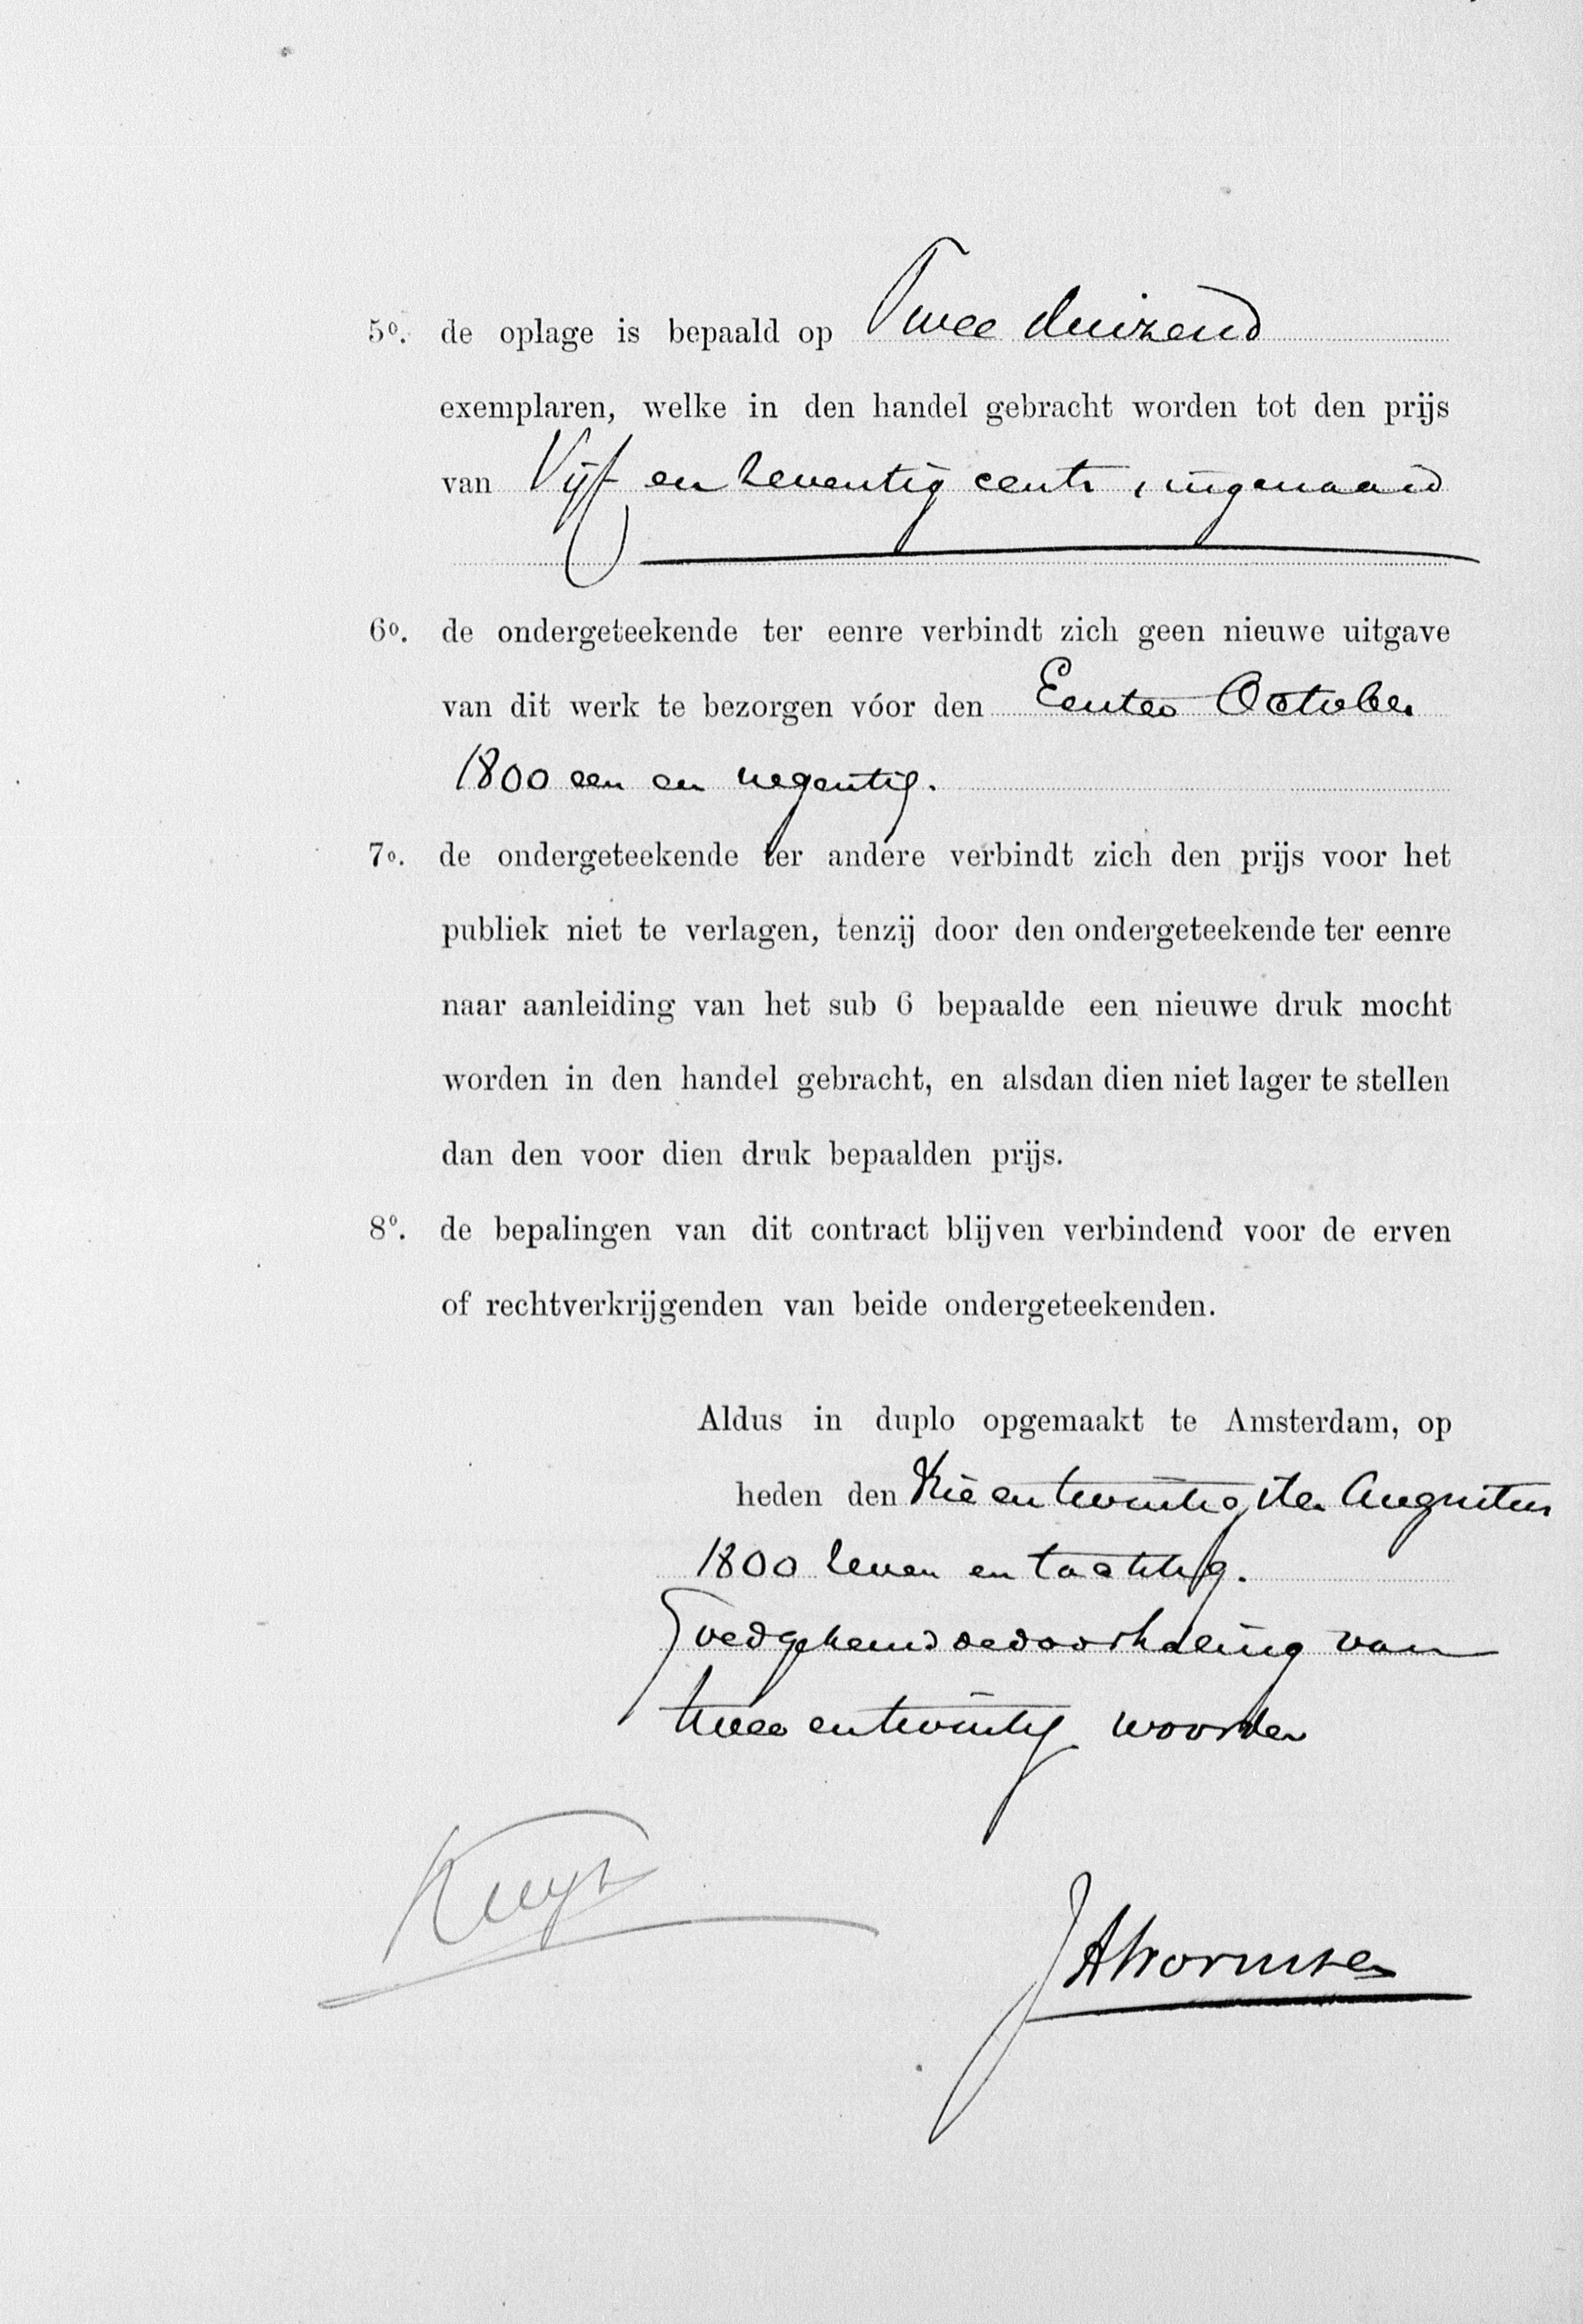 5⁰. de oplage is bepaald op Twee duizend
exemplaren, welke in den handel gebracht worden tot den prijs
van Vijf en zeventig cents, ingenaaid
6⁰. de ondergeteekende ter eenre verbindt zich geen nieuwe uitgave
van dit werk te bezorgen vóor den Eersten October
1800 een en negentig.
7⁰. de ondergeteekende ter andere verbindt zich den prijs voor het
publiek niet te verlagen, tenzij door den ondergeteekende ter eenre
naar aanleiding van het sub 6 bepaalde een nieuwe druk mocht
worden in den handel gebracht, en alsdan dien niet lager te stellen
dan den voor dien druk bepaalden prijs.
8⁰. de bepalingen van dit contract blijven verbindend voor de erven
of rechtverkrijgenden van beide ondergeteekenden.
Aldus in duplo opgemaakt te Amsterdam, op
heden den drie en twintigsten Augustus
1800 zeven en tachtig.
Goedgekeurd de doorhaling van
twee en twintig woorden
Kuyper
JAWormser